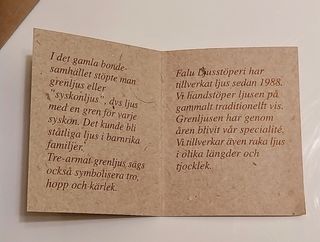 I det gamla bonde-
samhället stöpte man
grenljus eller
"syskonljus", dvs ljus
med en gren för varje
syskon. Det kunde bli
ståtliga ljus i barnrika
familjer.
Tre-armat grenljus sägs
också symbolisera tro,
hopp och kärlek.
Falu Ljusstöperi har
tillverkat ljus sedan 1988.
Vi handstöper ljusen på
gammalt traditionellt vis.
Grenljusen har genom
åren blivit vår specialité.
Vi tillverkar även raka ljus
i olika längder och
tjocklek.